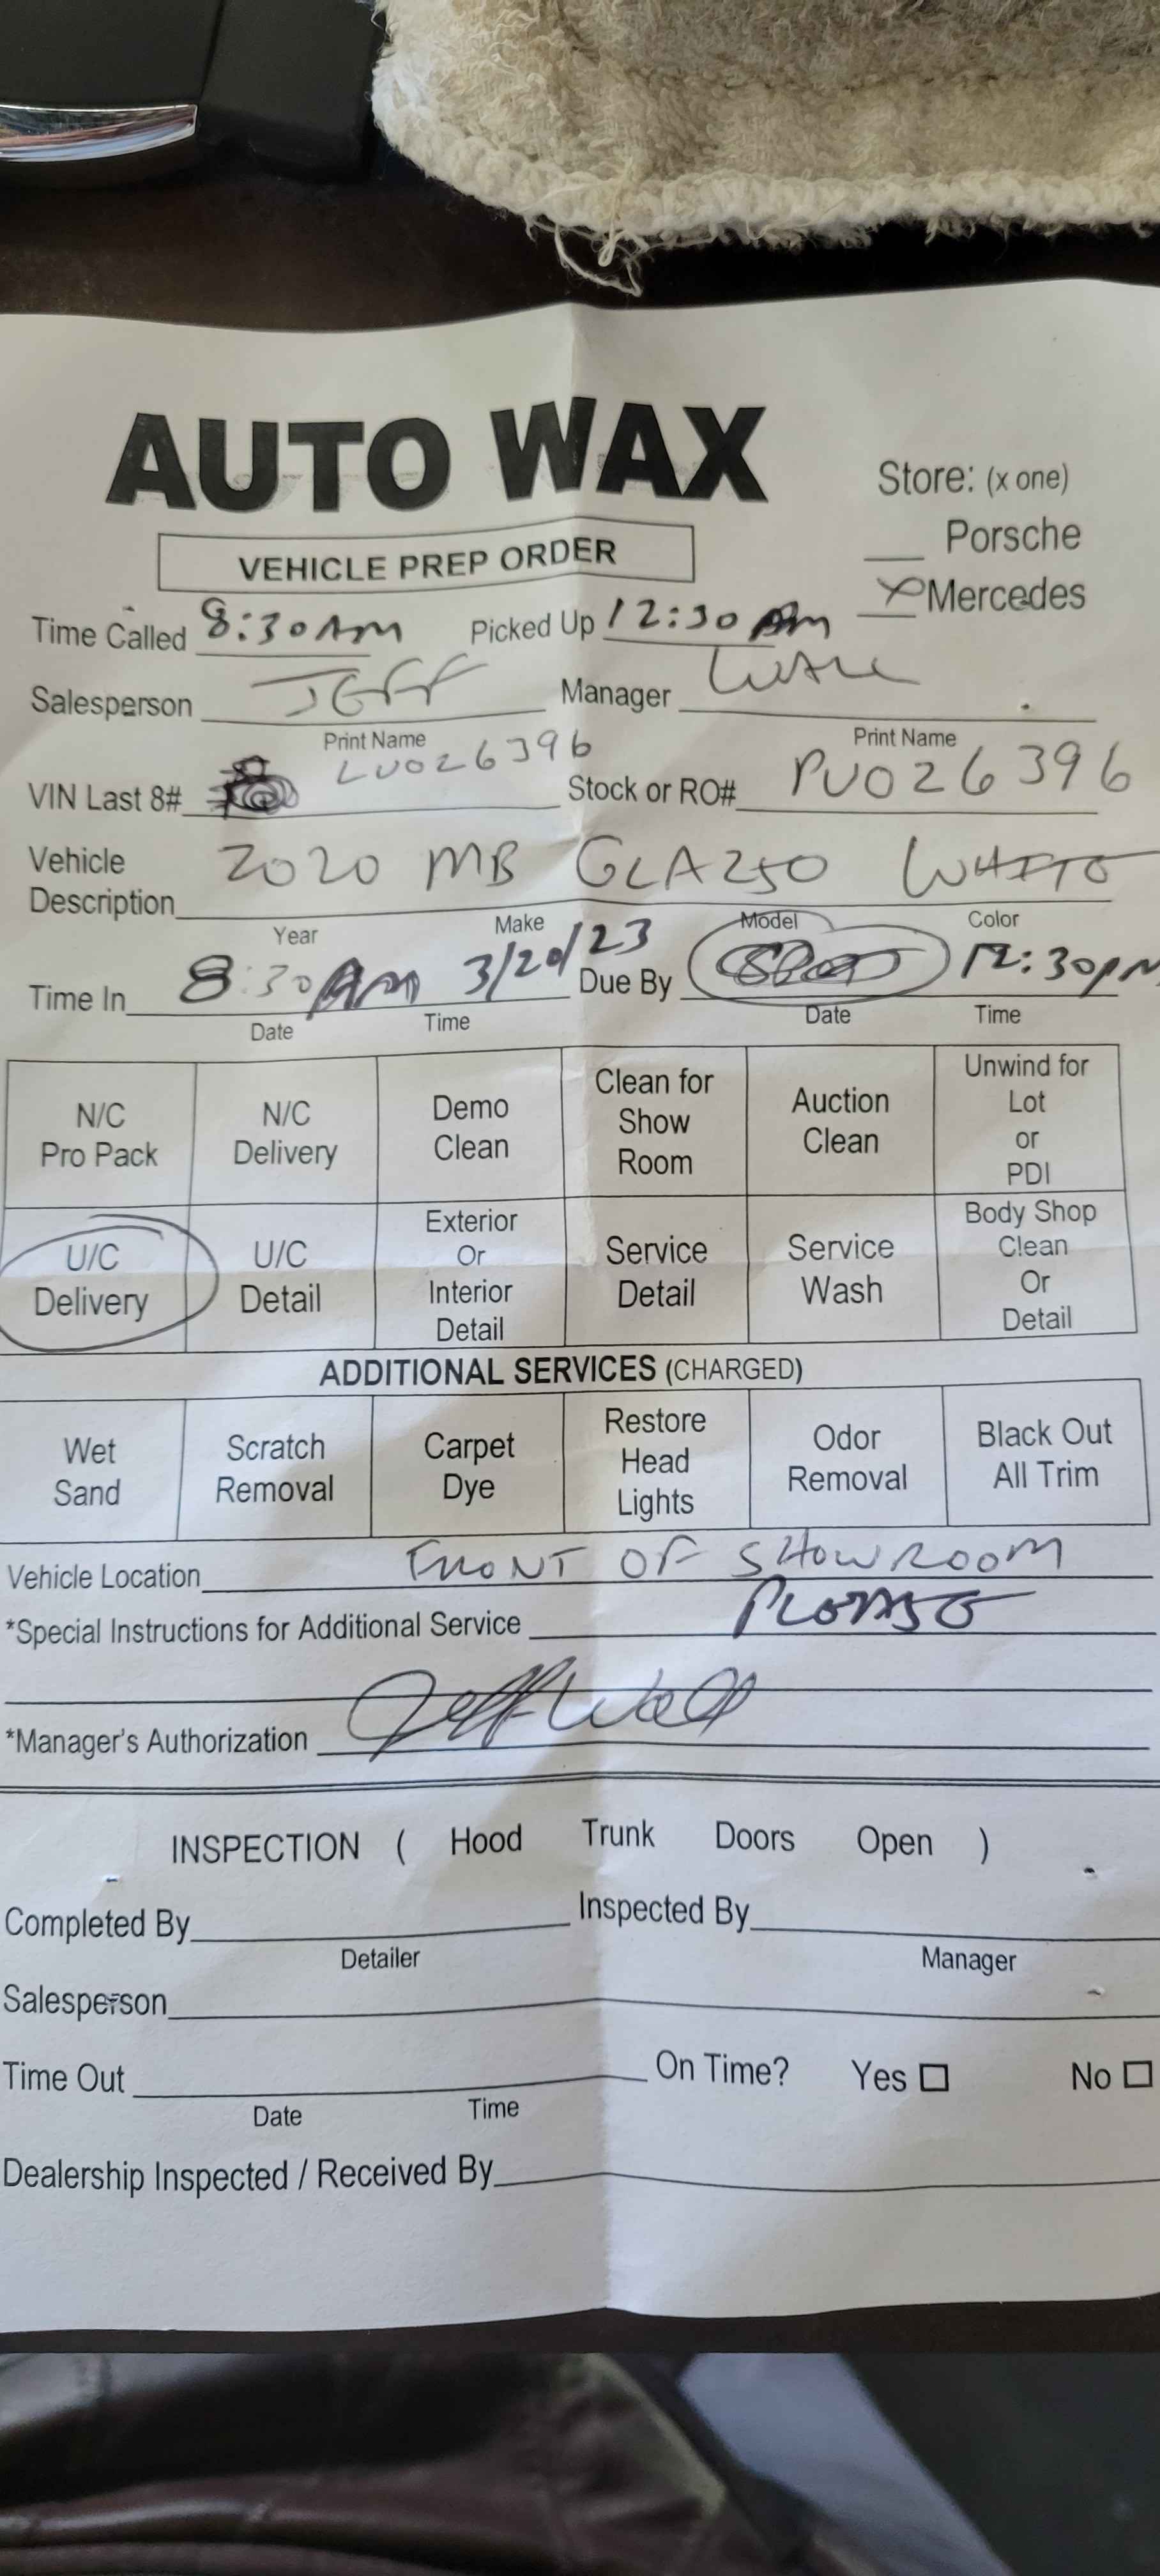 AUTO WAX
Store: (x one)
VEHICLE PREP ORDER
Porsche
X Mercedes
Time Called 8:30 Am Picked Up 12:30 pm
Salesperson JEFF Manager WALL
Print Name Print Name
VIN Last 8# LU026396 Stock or RO# PU026396
Vehicle Description 2020 MB GLA250 WHITE
Year Make Model Color
Time In 8:30 Am 3/20/23 Due By 12:30pm
Date Time Date Time
N/C Pro Pack N/C Delivery Demo Clean Clean for Show Room Auction Clean Unwind for Lot or PDI
U/C Delivery U/C Detail Exterior Or Interior Detail Service Detail Service Wash Body Shop Clean Or Detail
ADDITIONAL SERVICES (CHARGED)
Wet Sand Scratch Removal Carpet Dye Restore Head Lights Odor Removal Black Out All Trim
Vehicle Location FRONT OF SHOWROOM
*Special Instructions for Additional Service PLEASE
*Manager's Authorization Jeff Wall
INSPECTION ( Hood Trunk Doors Open )
Completed By Inspected By
Detailer Manager
Salesperson
Time Out On Time? Yes No
Date Time
Dealership Inspected / Received By